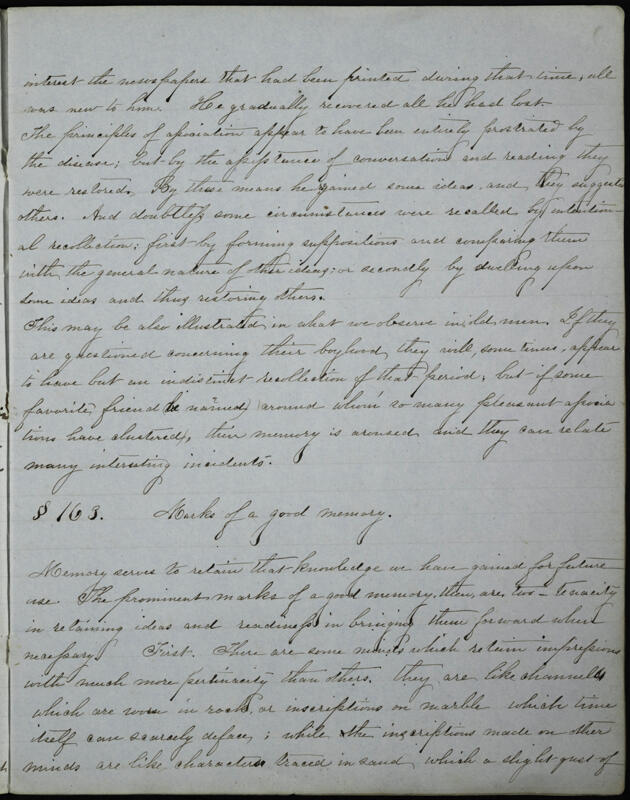 interest the newspapers that had been printed during that time, all
was new to him. He gradually recovered all he had lost
The principles of association appear to have been entirely prostrated by
the disease; but by the assistance of conversation and reading they
were restored. By these means he gained some ideas and they suggested
others. And doubtless some circumstances were recalled by intention-
al recollection; first by forming suppositions and comparing them
with the general nature of other ideas; or secondly by dwelling upon
some ideas and thus restoring others.
This may be also illustrated in what we observe in old men. If they
are questioned concerning their boyhood, they will, some times, appear
to have but an indistinct recollection of that period; but if some
favorite friend (be named) around whom so many pleasant associa
tions have clustered, their memory is aroused and they can relate
many interesting incidents.
§ 163. Marks of a good memory.
Memory serves to retain that knowledge we have gained for future
use The prominent marks of a good memory, then, are, two – tenacity
in retaining ideas and readiness in bringing them forward when
necessary. First. There are some minds which retain impressions
with much more pertinacity than others. they are like channells
which are worn in rock, or inscriptions on marble which time
itself can scarcely deface; while the inscriptions made on other
minds are like characters traced in sand which a slight gust of